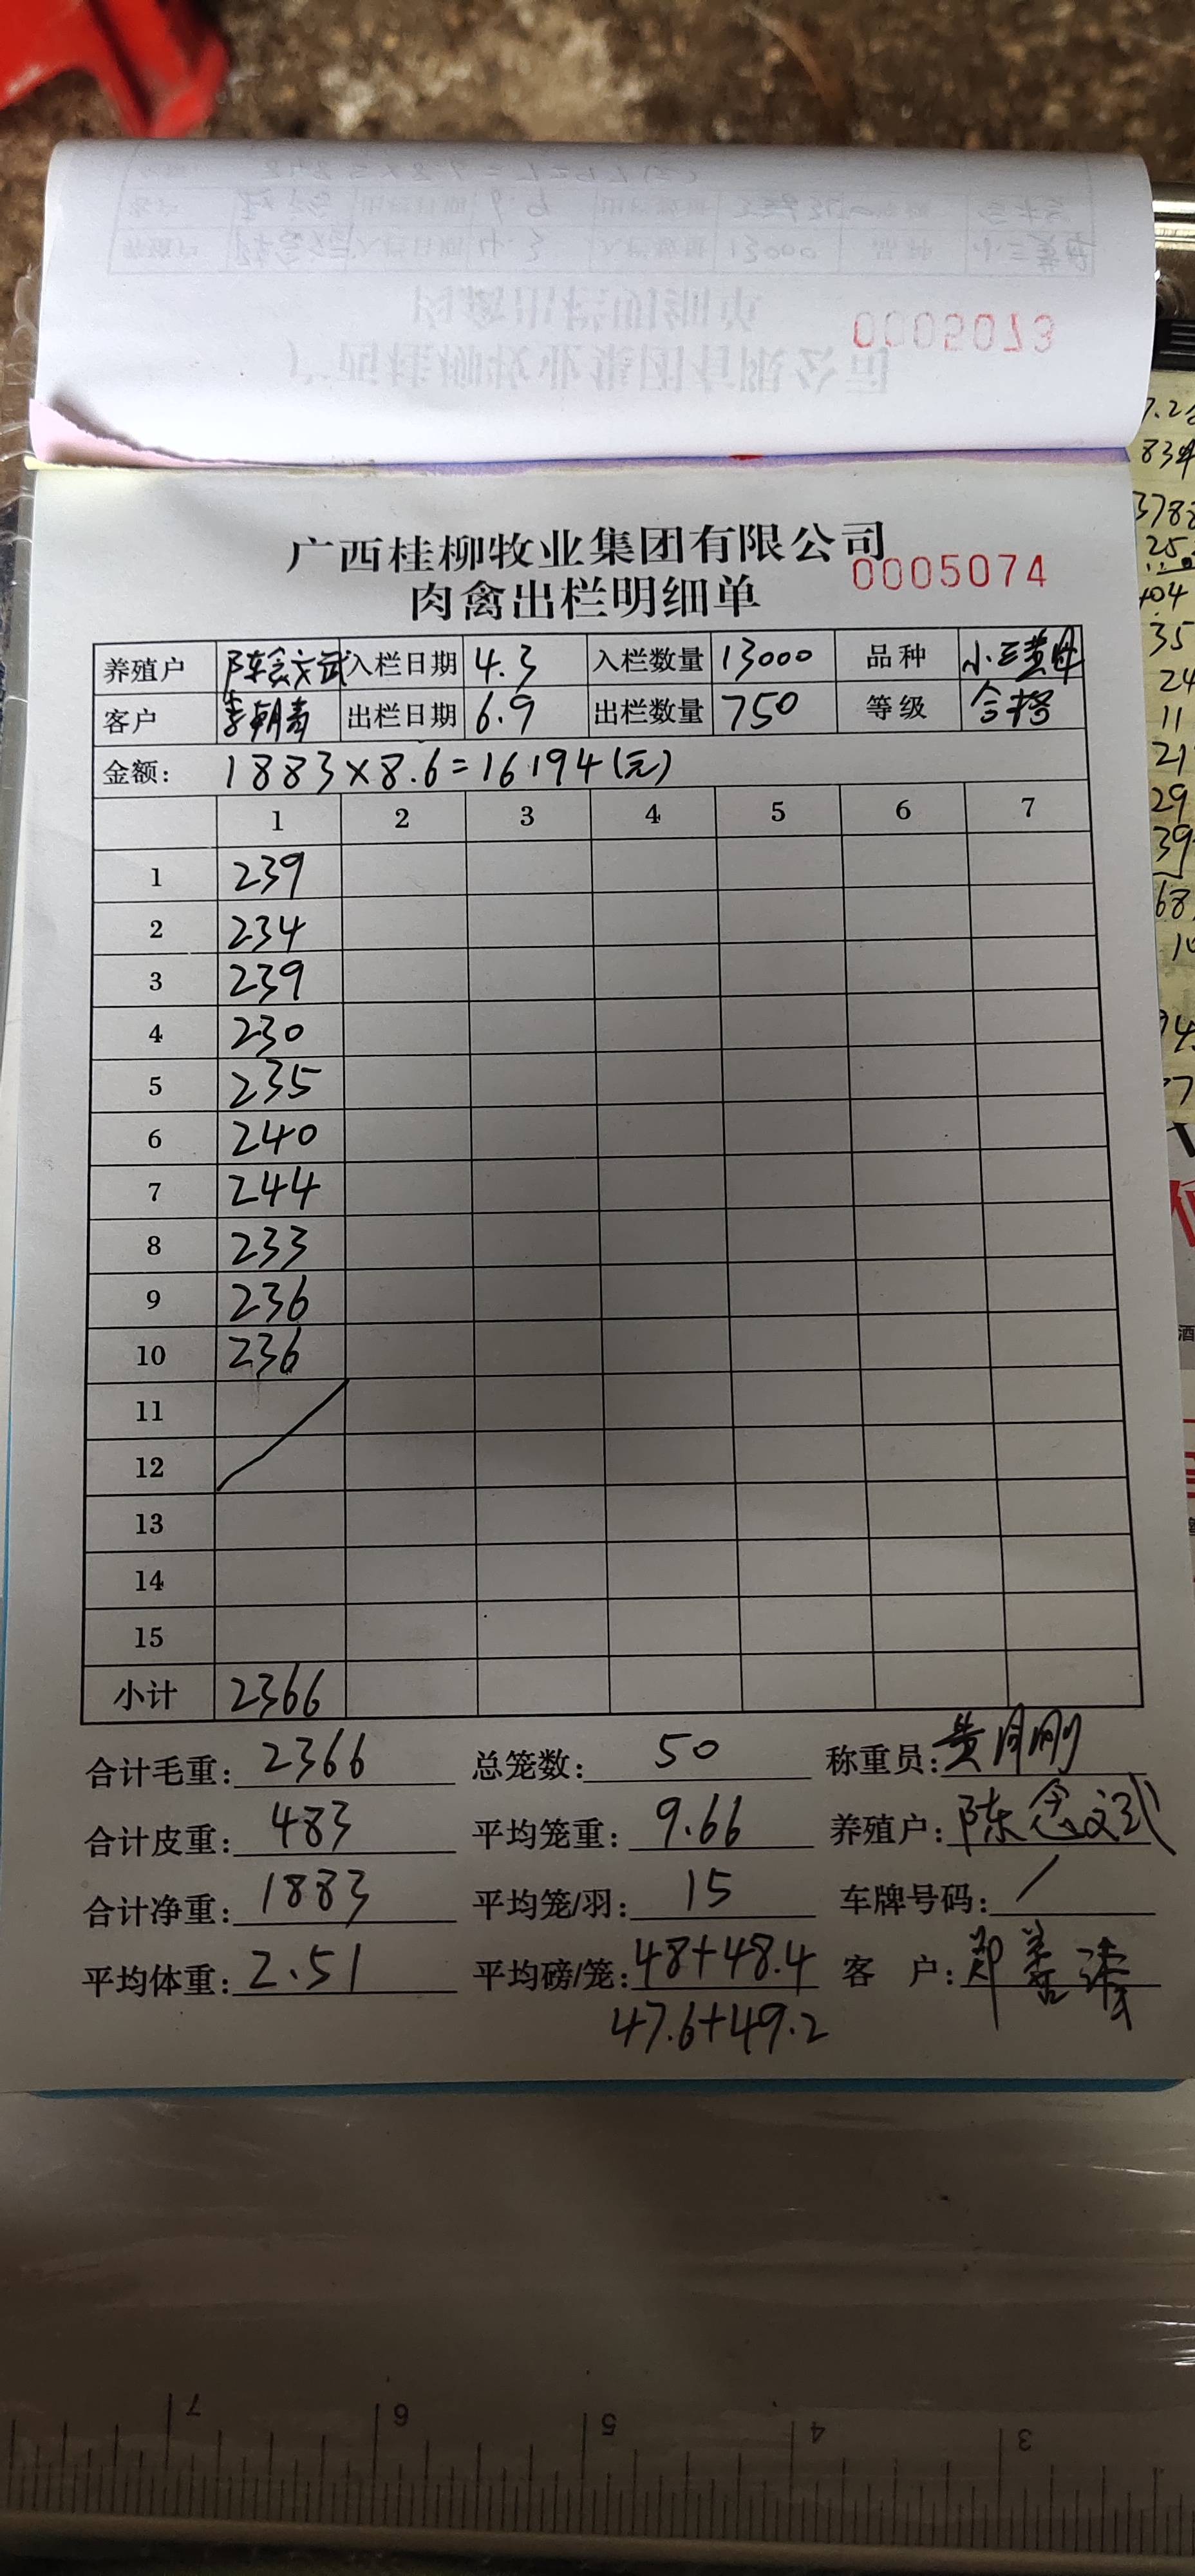 0005073
广西桂柳牧业集团有限公司
肉禽出栏明细单
0005074
养殖户 陈念文武 入栏日期 4.3 入栏数量 13000 品种 小三黄母
客户 李朝青 出栏日期 6.9 出栏数量 750 等级 合格
金额: 1883×8.6=16194(元)
1 2 3 4 5 6 7
1 239
2 234
3 239
4 230
5 235
6 240
7 244
8 233
9 236
10 236
11
12
13
14
15
小计 2366
合计毛重: 2366 总笼数: 50 称重员: 黄月刚
合计皮重: 483 平均笼重: 9.66 养殖户: 陈念文武
合计净重: 1883 平均笼/羽: 15 车牌号码: /
平均体重: 2.51 平均磅/笼: 48+48.4 客 户: 郑
47.6+49.2
7 6 5 4 3